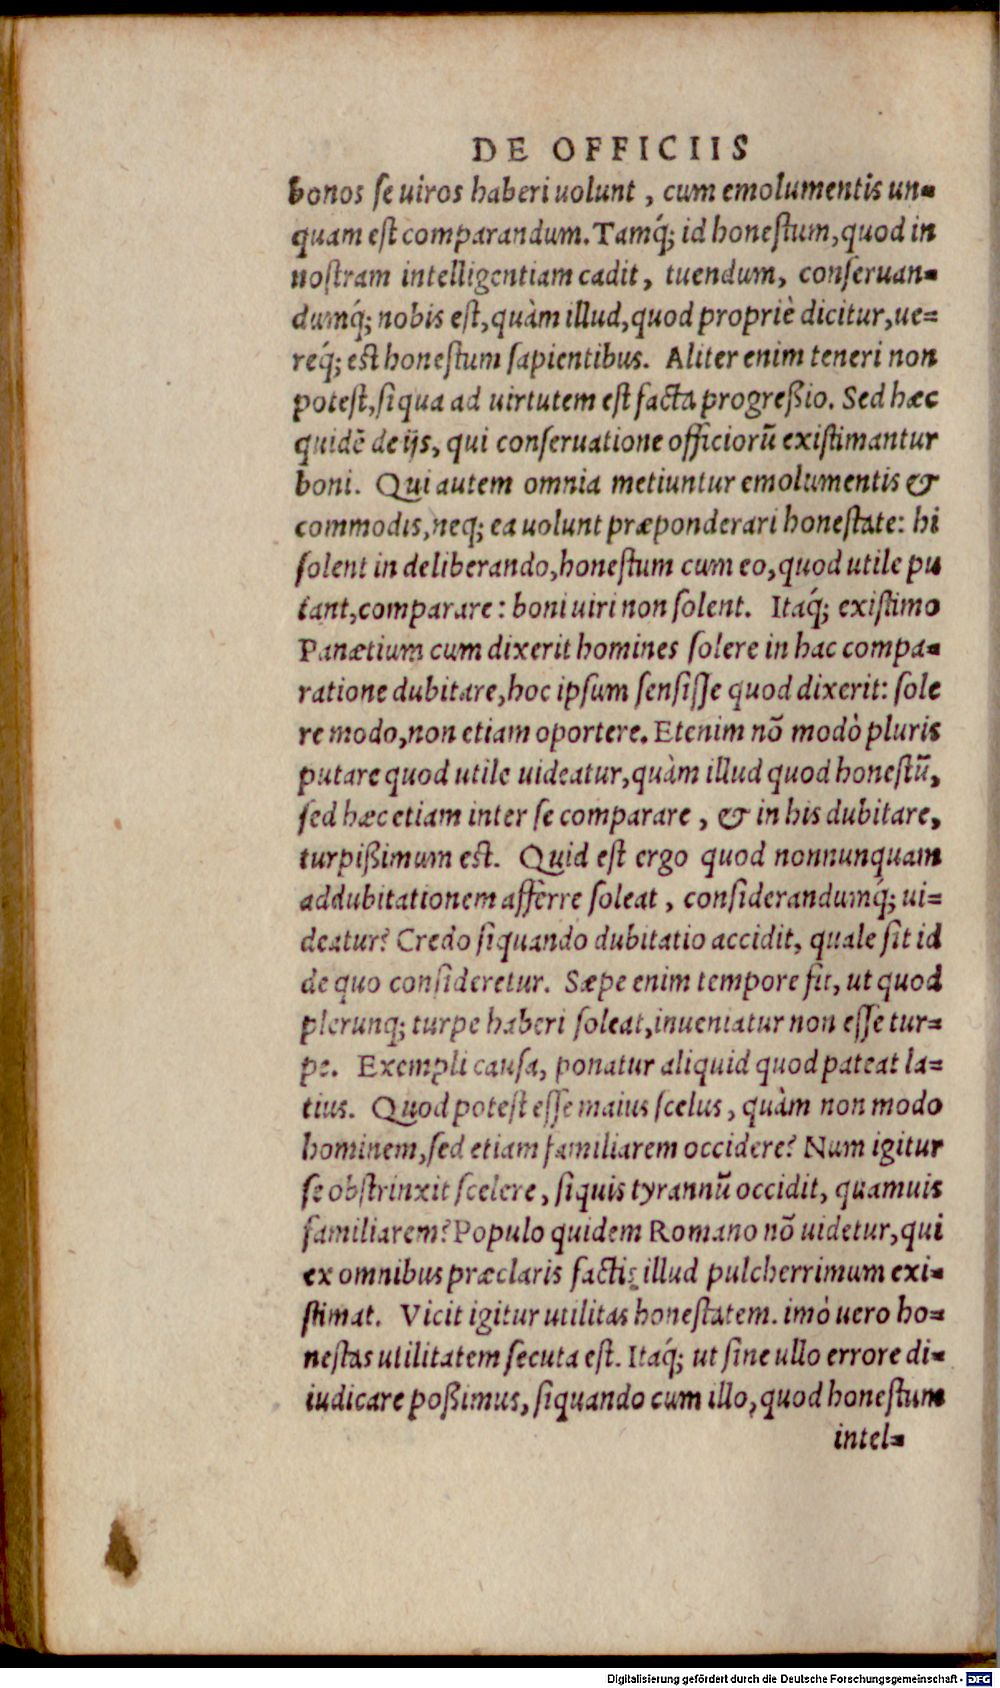 DE OFFICIIS
bonos se uiros haberi uolunt, cum emolumentis un-
quam est comparandum. Tamq́; id honestum, quod in
nostram intelligentiam cadit, tuendum, conseruan-
dumq́; nobis est, quàm illud, quod propriè dicitur, ue-
req́; est honestum sapientibus. Aliter enim teneri non
potest, siqua ad uirtutem est facta progreßio. Sed hæc
quidē de ijs, qui conseruatione officiorū existimantur
boni. Qui autem omnia metiuntur emolumentis &
commodis, neq; ea uolunt præponderari honestate: hi
solent in deliberando, honestum cum eo, quod utile pu
tant, comparare: boni uiri non solent. Itaq́; existimo
Panætium cum dixerit homines solere in hac compa-
ratione dubitare, hoc ipsum sensisse quod dixerit: sole
re modo, non etiam oportere. Etenim nō modò pluris
putare quod utile uideatur, quàm illud quod honestū,
sed hæc etiam inter se comparare, & in his dubitare,
turpißimum est. Quid est ergo quod nonnunquam
addubitationem afferre soleat, considerandumq́; ui-
deatur? Credo siquando dubitatio accidit, quale sit id
de quo consideretur. Sæpe enim tempore fit, ut quod
plerunq; turpe haberi soleat, inueniatur non esse tur-
pe. Exempli causa, ponatur aliquid quod pateat la-
tius. Quod potest esse maius scelus, quàm non modo
hominem, sed etiam familiarem occidere? Num igitur
se obstrinxit scelere, siquis tyrannū occidit, quamuis
familiarem? Populo quidem Romano nō uidetur, qui
ex omnibus præclaris factis illud pulcherrimum exi-
stimat. Vicit igitur utilitas honestatem. imò uero ho-
nestas utilitatem secuta est. Itaq́; ut sine ullo errore di-
iudicare poßimus, siquando cum illo, quod honestum
intel-
Digitalisierung gefördert durch die Deutsche Forschungsgemeinschaft - DFG